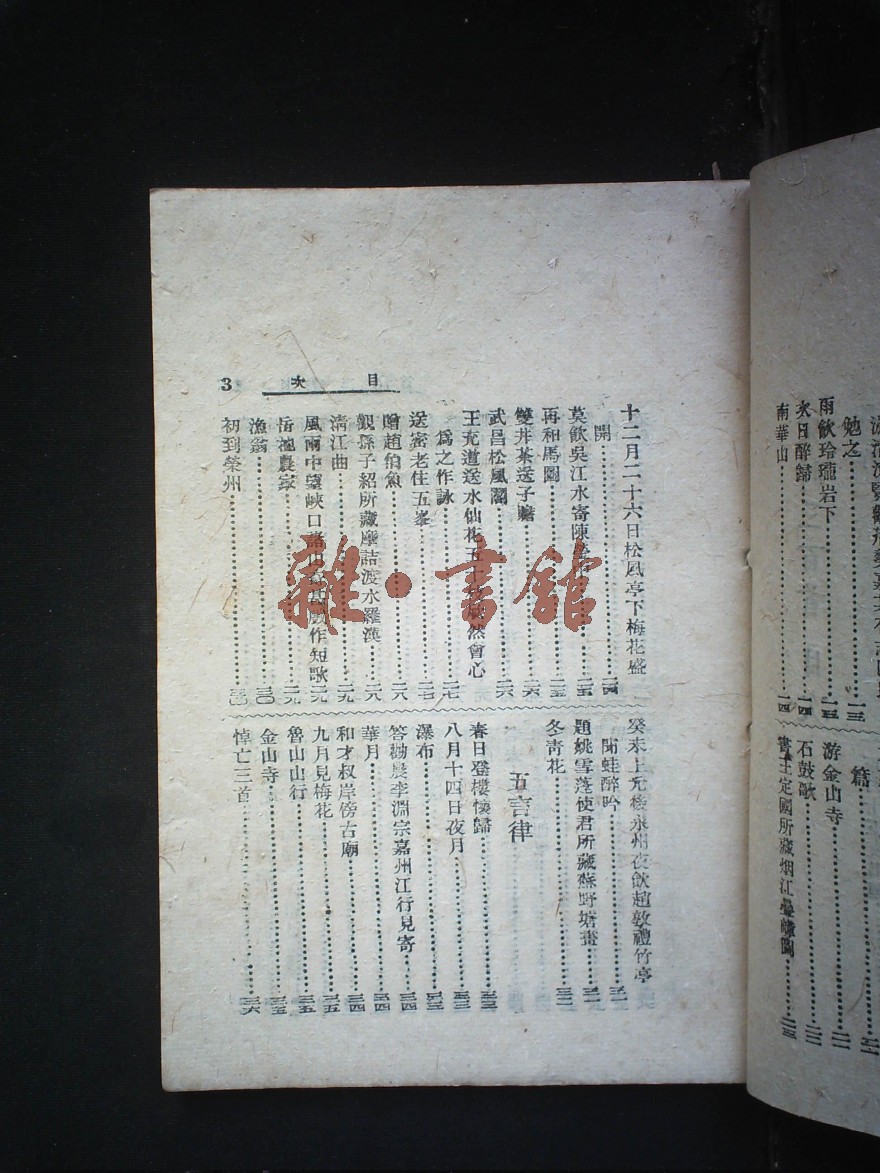 勉之……一三
雨飲玲瓏岩下……一三
次日醉歸……一四
南華山……一四
篇……
游金山寺……二一
石鼓歌……二二
書王定國所藏烟江疊嶂圖……二三
目次 3
十二月二十六日松風亭下梅花盛
開……二四
莫飲吳江水寄陳……二五
再和馬圖……二五
雙井茶送子瞻……二六
武昌松風閣……二六
王充道送水仙花五十然會心
爲之作詠……二七
送密老住五峯……二七
贈趙伯魚……二八
觀孫子紹所藏摩詰渡水羅漢……二八
淸江曲……二九
風雨中望峽口諸山作短歌……二九
岳池農家……二九
漁翁……三〇
初到榮州……三〇
癸未上元後永州夜飲趙敦禮竹亭
聞蛙醉吟……三一
題姚雪蓬使君所藏蘇野塘畫……三一
冬靑花……三二
五言律
春日登樓懷歸……三三
八月十四日夜月……三三
瀑布……三三
答勸農李淵宗嘉州江行見寄……三四
華月……三四
和才叔岸傍古廟……三四
九月見梅花……三五
魯山山行……三五
金山寺……三五
悼亡三首……三六
雜·書館